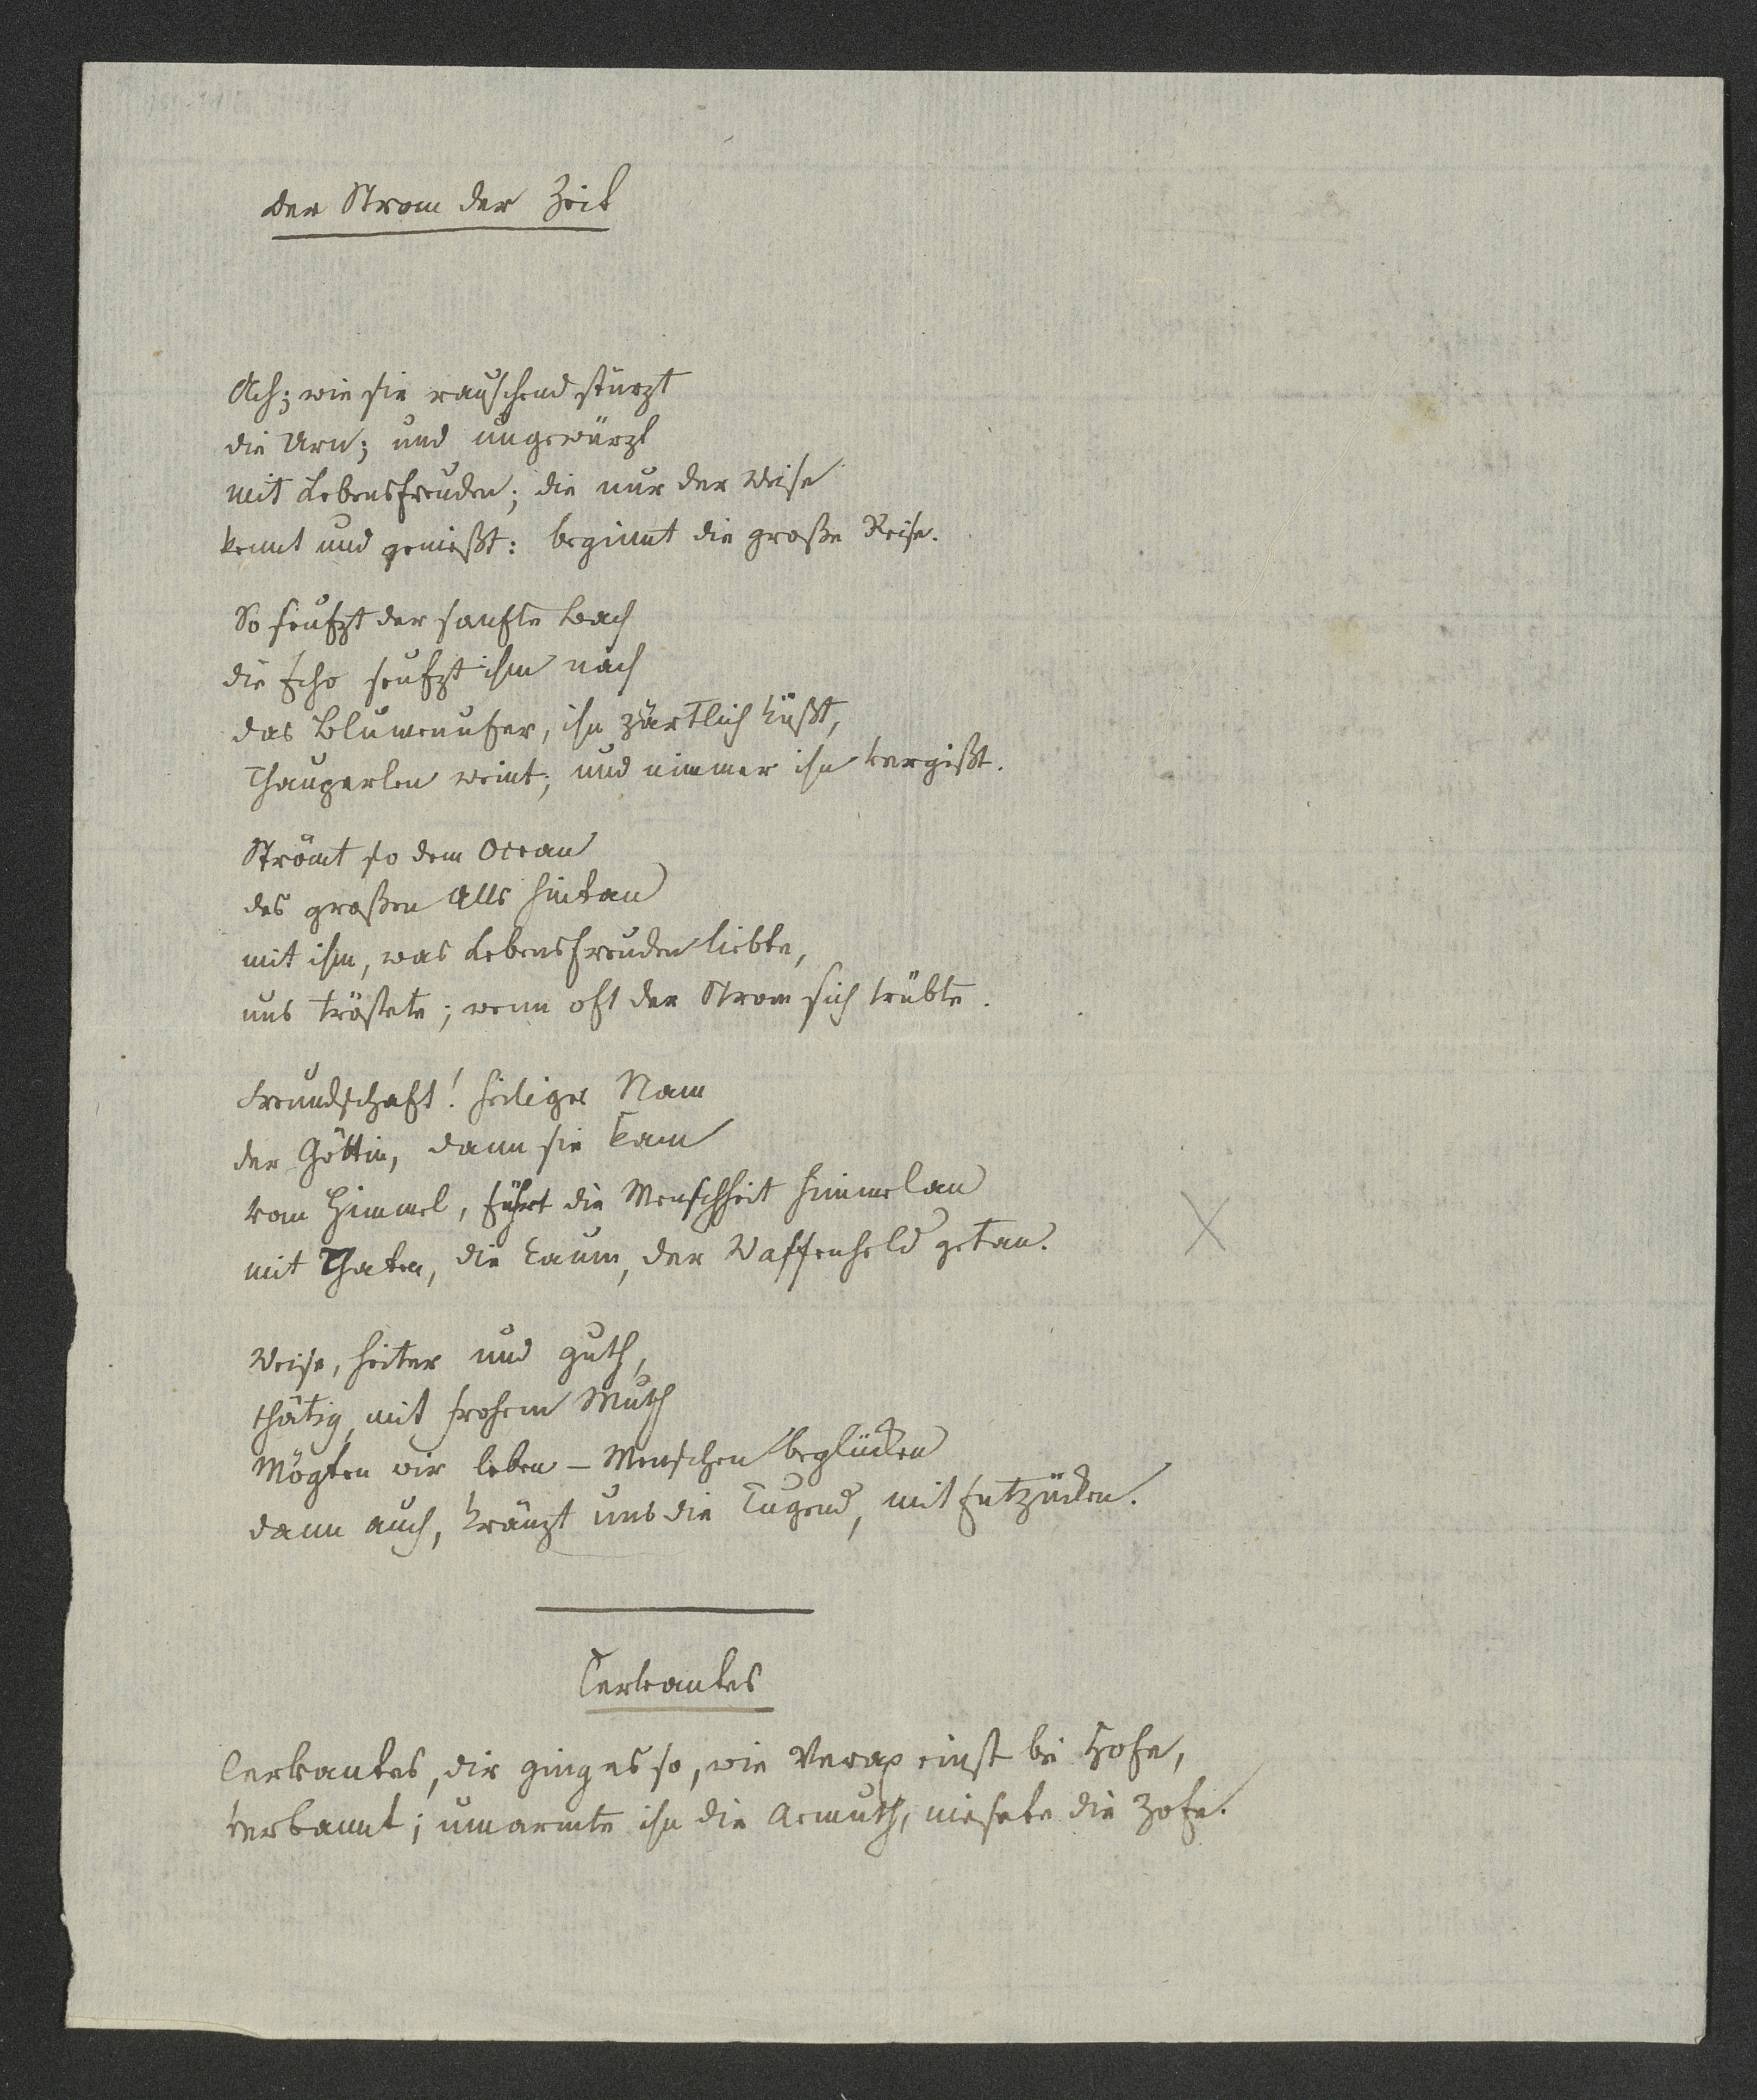 Der Strom der Zeit
Ach; wie sie rauschend stürzt
die Urn; und ungewürzt
mit Lebensfreuden; die nur der Weise
kennt und genießt: beginnt die große Reise.
So seufzt der sanfte Bach
die Echo seufzt ihm nach
das Blumenufer, ihn zärtlich küßt,
Thauperlen weint; und nimmer ihn vergißt.
Strömt so dem Ocean
des großen Alls hintan
mit ihm, was Lebensfreuden liebte,
uns tröstete; wenn oft der Strom sich trübte.
Freundschaft! heiliger Nam
der Göttin, dann sie kam
vom Himmel, führt die Menschheit himmelan
mit Thaten, die kaum, der Waffenheld getan.
Weise, heiter und guth,
thätig, mit frohem Muth
Mögten wir leben – Menschen beglücken
dann auch, kränzt uns die Tugend, mit Entzücken.
Cervantes
Cervantes, dir ging es so, wie einst bei Hofe,
verbannt; umarmte ihn die Armuth, niesete die Zofe.